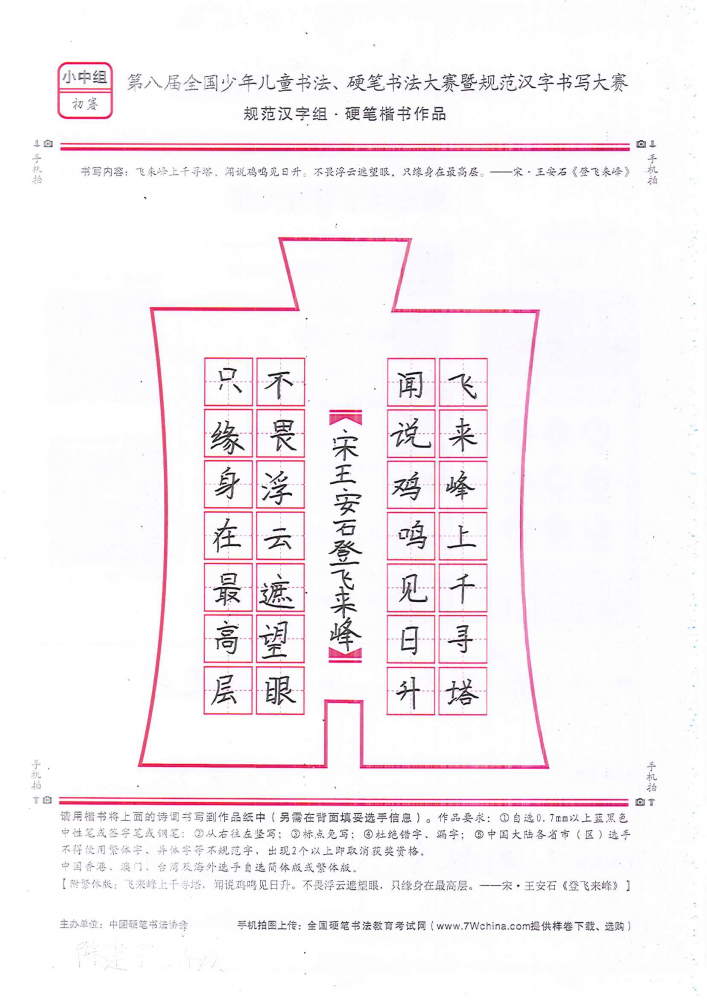 小中组
初赛
第八届全国少年儿童书法、硬笔书法大赛暨规范汉字书写大赛
规范汉字组·硬笔楷书作品
手机拍
手机拍
书写内容：飞来峰上千寻塔，闻说鸡鸣见日升。不畏浮云遮望眼，只缘身在最高层。——宋·王安石《登飞来峰》
飞来峰上千寻塔
闻说鸡鸣见日升
宋王安石登飞来峰
不畏浮云遮望眼
只缘身在最高层
手机拍
手机拍
请用楷书将上面的诗词书写到作品纸中（另需在背面填妥选手信息）。作品要求：①自选0.7mm以上蓝黑色
中性笔或签字笔或钢笔；②从右往左竖写；③标点免写；④杜绝错字、漏字；⑤中国大陆各省市（区）选手
不得使用繁体字、异体字等不规范字，出现2个以上即取消获奖资格。
中国香港、澳门、台湾及海外选手自选简体版或繁体版。
【附繁体版：飞來峰上千尋塔，闻说鸡鸣見日升。不畏浮云遮望眼，只缘身在最高层。——宋·王安石《登飞来峰》】
主办单位：中国硬笔书法协会
手机拍图上传：全国硬笔书法教育考试网（www.7Wchina.com提供样卷下载、选购）